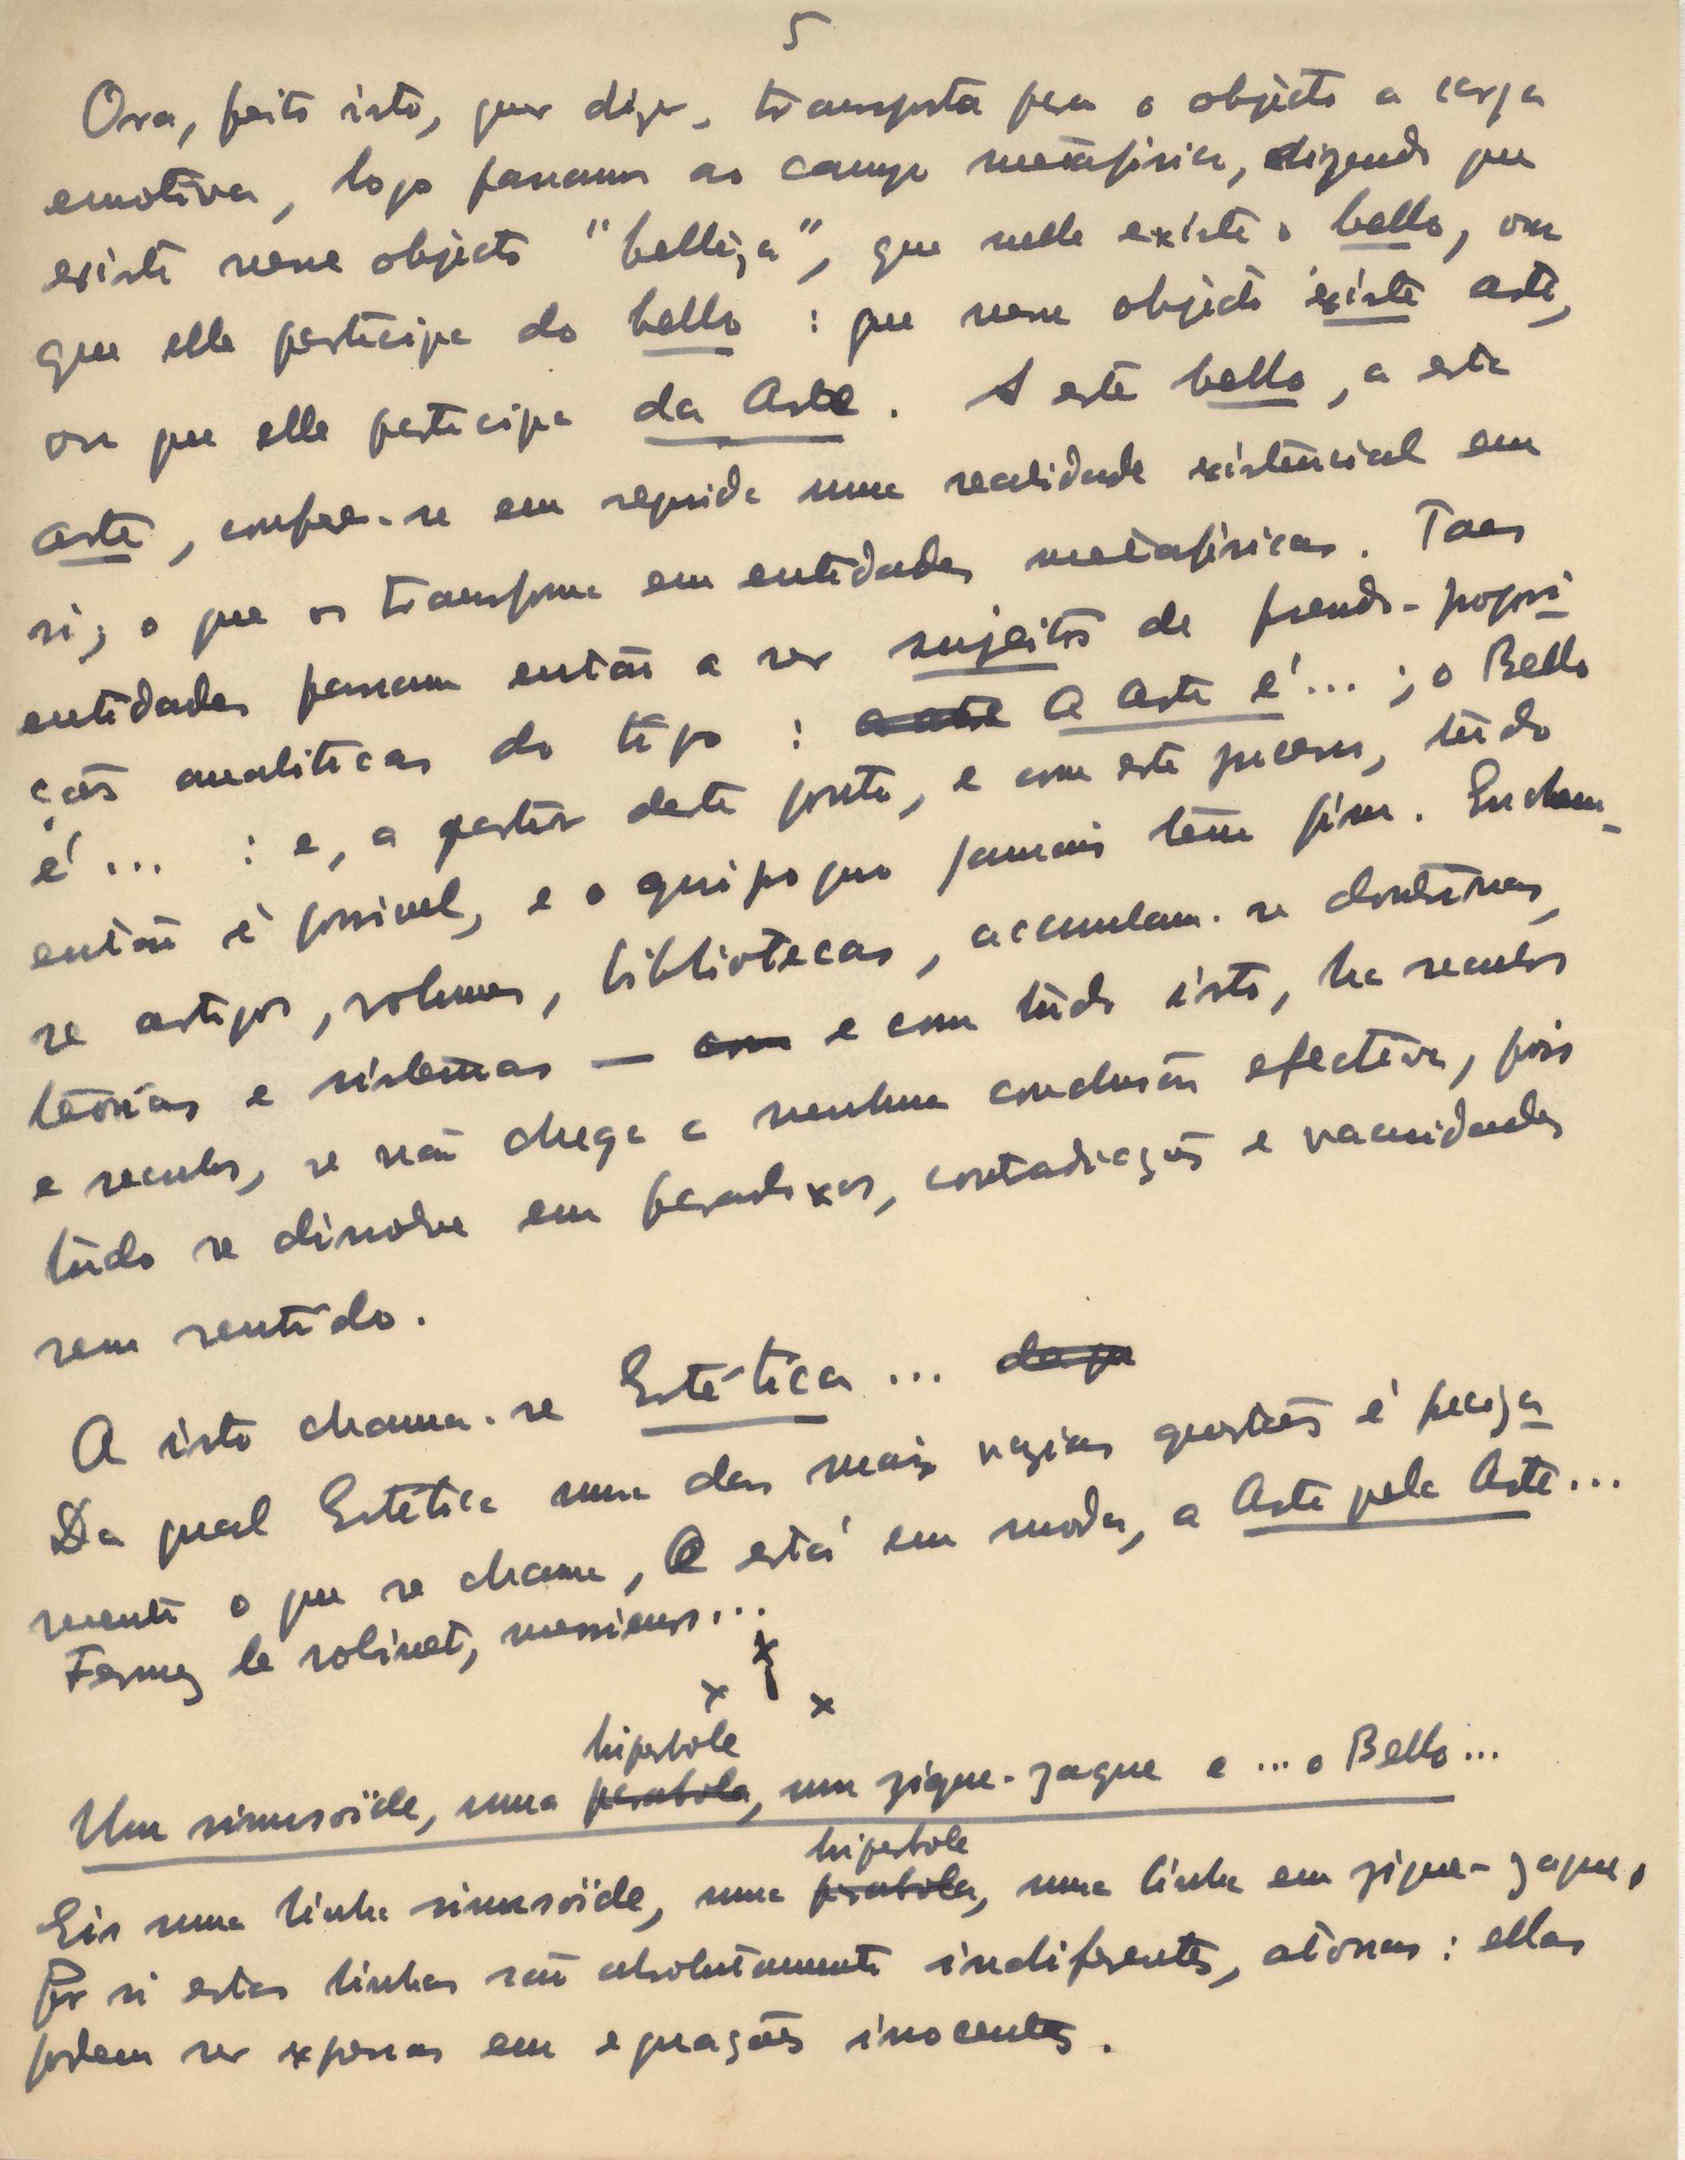 5
Ora, feito isto, quer dizer, transposta para o objecto a carga
emotiva, logo passamos ao campo metafisico, dizendo que
existe nesse objecto "belleza", que nelle existe o bello, ou
que elle participa do bello : que nesse objecto existe arte,
ou que elle participa da Arte. A este bello, a esta
arte, confere-se em seguida uma realidade existencial em
si; o que os transforma em entidades metafisicas. Taes
entidades passam então a ser sujeitos de pseudo-proposi-
ções analiticas do tipo : a arte A Arte é... ; o Bello
é ... : e, a partir deste ponto, e com este processo, tudo
então é possivel, e o quiproquo jamais têm fim. Enchem-
se artigos, volumes, bibliotecas, accumulam-se doutrinas,
teorias e sistemas — com e com tudo isto, ha seculos
e seculos, se não chega a nenhuma conclusão efectiva, pois
tudo se dissolve em paradoxos, contradicções e vacuidades
sem sentido.
A isto chama-se Estética ... da qu
Da qual Estética uma das mais vazias questões é preciza-
mente o que se chama, e está em moda, a Arte pela Arte...
Fermez le robinet, messieurs...
x x x
hiperbole
Uma sinusoïde, uma parabola, um zigue-zague e ... o Bello...
hiperbole
Eis uma linha sinusoïde, uma parabola, uma linha em zigue-zague.
Por si estas linhas são absolutamente indiferentes, atonas : ellas
podem ser expressas em equações inocentes.